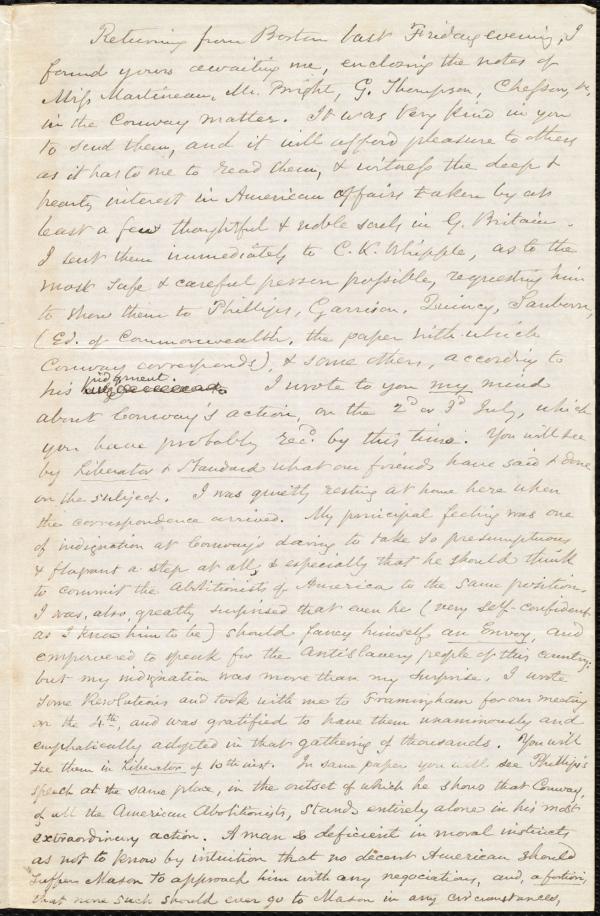 Returning from Boston last Friday evening, I
found yours awaiting me, enclosing the notes of
Miss Martineau, Mr. Bright, G. Thompson, Chesson, &c.
in the Conway matter. It was very kind in you
to send them, and it will afford pleasure to others
as it has to me to read them, & witness the deep &
hearty interest in American affairs taken by at
least a few thoughtful & noble souls in G. Britain.
I sent them immediately to C. K. Whipple, as to the
most safe & careful person possible, requesting him
to show them to Phillips, Garrison, Quincy, Sanborn,
(Ed. of Commonwealth, the paper with which
Conway corresponds), & some others, according to
his judgment. I wrote to you my mind
about Conway's action, on the 2d or 3d July, which
you have probably recd. by this time. You will see
by Liberator & Standard what our friends have said & done
on the subject. I was quietly resting at home here when
the correspondence arrived. My principal feeling was one
of indignation at Conway's daring to take so presumptuous
& flagrant a step at all, & especially that he should think
to commit the abolitionists of America to the same position.
I was, also, greatly surprised that even he (very self-confident
as I knew him to be) should fancy himself an Envoy, and
empowered to speak for the antislavery people of this country;
but my indignation was more than my surprise. I wrote
some Resolutions and took with me to Framingham for our meeting
on the 4th, and was gratified to have them unanimously and
emphatically adopted in that gathering of thousands. You will
see them in Liberator of 10th inst. In same paper you will see Phillips's
speech at the same place, in the outset of which he shows that Conway,
of all the American Abolitionists, stands entirely alone in his most
extraordinary action. A man so deficient in moral instincts
as not to know by intuition that no decent American should
suffer Mason to approach him with any negociations, and, a fortiori,
that none such should ever go to Mason in any circumstances,